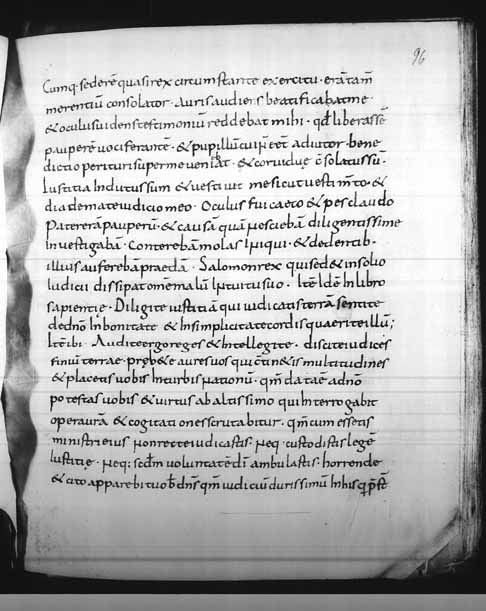 96
Cumq· sederē quasi rex circumstante exercitu· erā tam̄
merentiū consolator· Auris audiens beatificabat me·
& oculus uidens testimoniū reddebat mihi· qđ liberassē
pauperē uociferante· & pupillū cui ñ eēt adiutor· bene
dictio perituri super me ueniebat· & cor uidue c̄solatus sū·
Iustitia Indutus sum & uestiuit me sicut uestim̄to· &
diademate iudicio meo· Oculus fui caeco & pes claudo
Pater erā pauperū· & causā quā nesciebā diligentissime
Inuestigabā· Conterebā molas Iniqui· & de dentib·
illius auferebā praedā· Salomon rex qui sed& in solio
Iudicii dissipat omē malū Intuitu suo· Itē Idē In libro
sapientie· Diligite iustitiā qui iudicatis terrā sentite
de dn̄o In bonitate & In simplicitate cordis quaerite illū;
Itē ibi· Audite ergo reges & Intellegite· discite iudices
finiū terrae· preb&e aures uos qui c̄tin&is multitudines
& placetis uobis In turbis nationū· qm̄ data ē a dn̄o
potestas uobis & uirtus ab altissimo qui Interrogabit
opera ur̄a & cogitationes scrutabitur· qm̄ cum essetis
ministri eius non recte iudicastis· neq· custodistis legē
Iustitie· neq· scdm̄ uoluntatē dī ambulastis· horrende
& cito apparebit uob dn̄s qm̄ iudiciū durissimū In his q p̄st̄